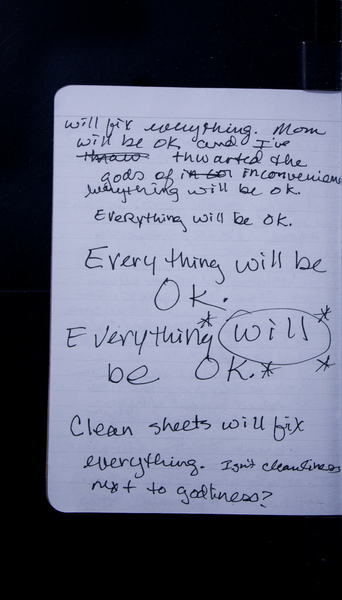 will fix everything. Mom
will be OK and I've
thwarted the
gods of inconvenience
everything will be OK.
Everything will be OK.
Everything will be
OK.
Everything will
be OK.
Clean sheets will fix
everything. Isn't cleanliness
next to godliness?